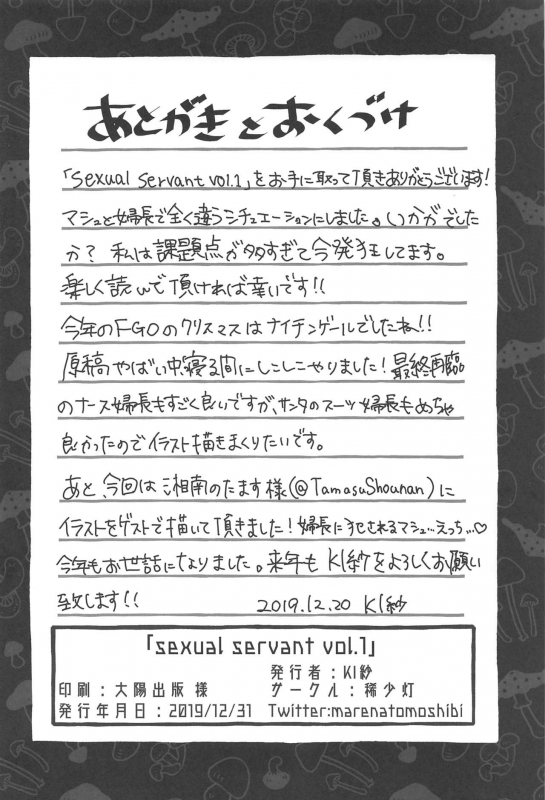 あとがきとおくづけ
「sexual servant vol.1」をお手に取って頂きありがとうございます!
マシュと婦長で全く違うシチュエーションにしました。いかがでした
か? 私は課題点が多すぎて今発狂してます。
楽しく読んで頂ければ幸いです!!
今年のFGOのクリスマスはナイチンゲールでしたね!!
原稿やばい中寝る間にしこしこやりました!最終再臨
のナース婦長もすごく良いですが、サンタのスーツ婦長もめちゃ
良かったのでイラスト描きまくりたいです。
あと、今回は湘南のたます様(@TamasuShounan)に
イラストをゲストで描いて頂きました!婦長に犯されるマシュ…えっち…♡
今年もお世話になりました。来年もKI紗をよろしくお願い
致します!! 2019.12.20 KI紗
「sexual servant vol.1」
発行者:KI紗
印刷:大陽出版 様 サークル:稀少灯
発行年月日:2019/12/31 Twitter:marenatomoshibi